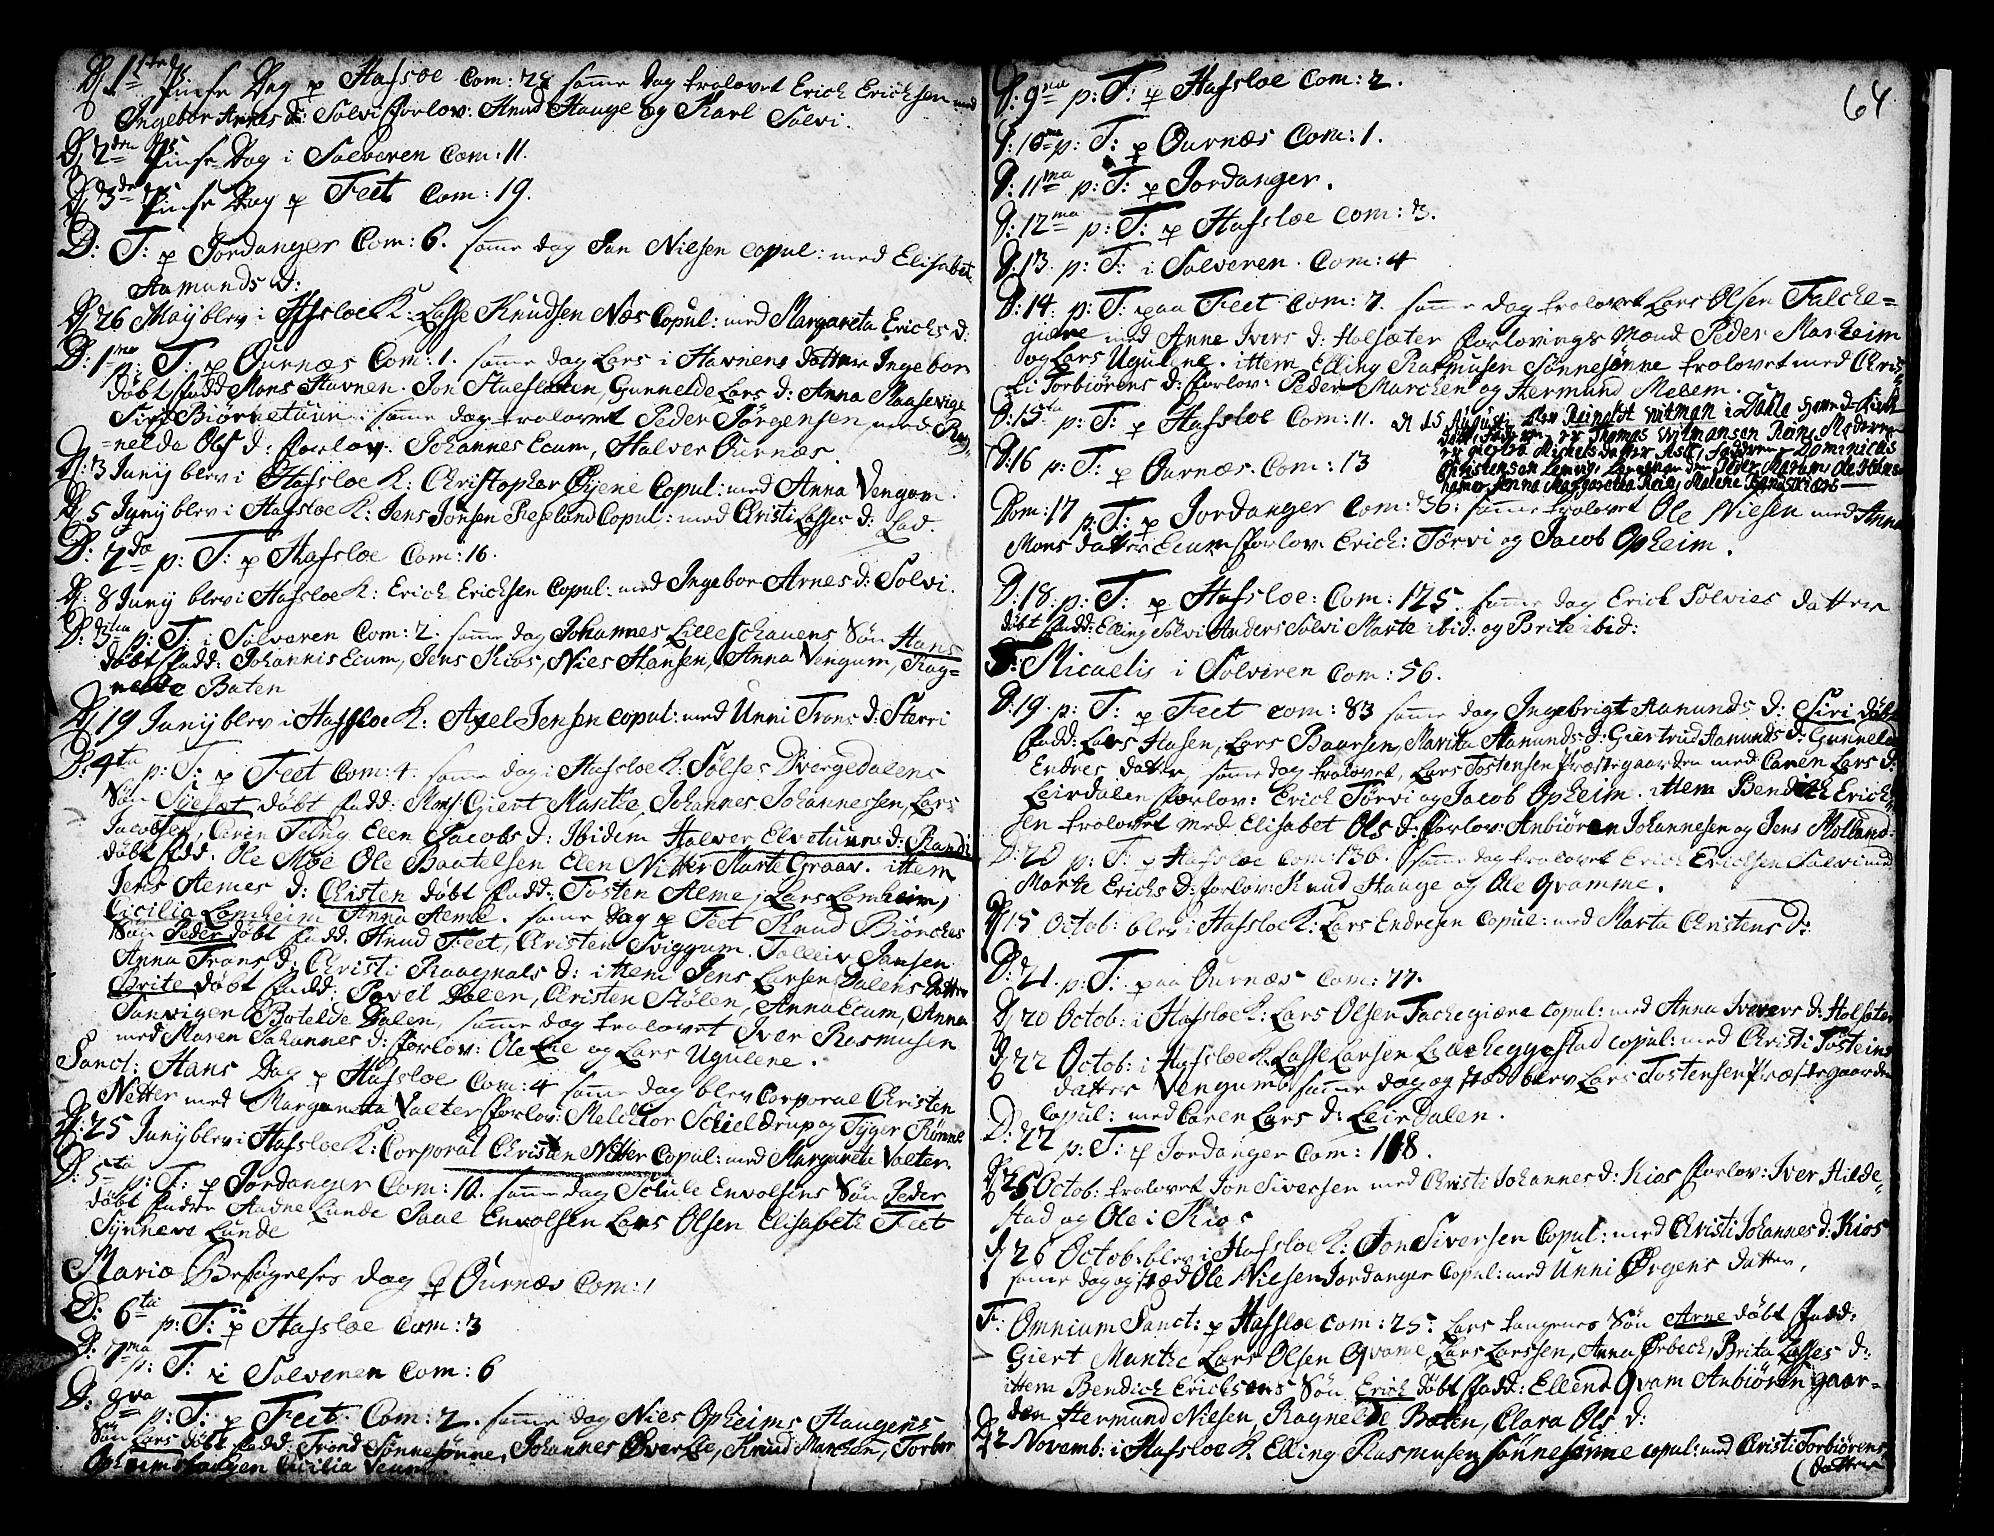 D. 1ste Pinse Dag p Hafsloe Com: 28 same dag trolovet Erich Erichsen med
Ingebor Arnes d: Solvi forlov: Knud Hauge og Karl Solvi.
D. 2den Pinse Dag i Solveren Com: 11.
D. 3de Pinse Dag p Feet Com: 19.
D: T: p Jordanger Com: 6. same dag Jan Nielsen copul: med Elisabet
Aamunds d:
D. 26 Maij blev i Hafsloe K: Lasse Knudsen Næs Copul: med Margareta Erichs d:
D: 1ma p: T: p Ournæs Com: 1. same dag Lars i Havnens datter Ingebor
döbt fadd Mons Havnen. Jon Gunnelde Lars d: Anna
Siri Biörnetuun. same dag trolovet Peder Jörgensen med Rag-
nelda Ols d: forlov: Johannes Ecum, Halver Ournæs.
D. 3 Junij blev i Hafsloe K: Christopher Öyene Copul: med Anna Vengum.
D. 5 Junij blev i Hafsloe K: Jens Jonsen Copul: med Christi Lasses d: Lad.
D: 2da p: T: p Hafsloe Com: 16.
D. 8 Junij blev i Hafsloe K: Erich Erichsen Copul: med Ingebor Arnes d: Solvi.
D: 3tia p: T: i Solveren Com: 2. same dag Johannes Lille Schauens Sön Hans
döbt fadd: Johannis Ecum, Jens Kios, Niels Hansen, Anna Vengum, Rag-
nelde Baten
D. 19 Junij blev i Hafsloe K: Axel Jensen copul: med Unni Trons d: Sterri
D: 4ta p: T: p Feet Com: 4. same dag i Hafsloe K: Sölfes Dvergedalens
Sön döbt fadd: Mons: Giert Munthe Johannes Johannessen, Lars
Jacobsen, Caren Elen Jacobs d: Ibidem Halver Elvetuns d: Randi
döbt fadd. Ole Moe Ole Baatelsen Elen Nitter Marte Graav. ittem
Jens Aemes d: Christen döbt fadd: Tosten Aeme, Lars Lomheim,
Cicilia Lomheim Anna Aeme. same dag p Feet Knud Biönches
Sön Peder döbt fadd. Knud Feet, Christen Sviggum. Tolleiv Jansen
Anna Trons d: Christi Raagnals d: ittem Jens Larsen Dalens datter
Brite döbt fadd: Povel Dalen, Christen Stölen, Anna Ecum, Anna
Sanvigen Botelde Dalen, same dag trolovet Iver Rasmusen
med Maren Johannes d: forlov: Ole og Lars Ugulene.
Sanct: Hans Dag p Hafsloe Com: 4 same dag blev Corporal Christen
Nitter med Margareta Valter forlov: Melchior Schieldrup og Tyger Rönne
D: 25 Junij blev i Hafsloe K: Corporal Christen Nitter Copul: med Margareta Valter.
D: 5ta p: T: p Jordanger Com: 10. same dag Schule Envolsens Sön Peder
döbt fadd: Aadne Lunde Paul Envolsen Lars Olsen Elisabeth Feet
Synneve Lunde
Mariæ Besögelses dag p Ournæs Com: 1
D: 6ta p: T: p Hafsloe Com: 3
D: 7ma p: T: i Solveren Com: 6
D: 8va p: T: p Feet. Com: 2. same dag Niels Opheims Haugens
Sön Lars döbt fadd: Trond Sönnesönne, Johannes Knud Marchen, Torbor
Opheimshaugen Cicilia
64
D: 9na p: T: p Hafsloe Com: 2.
D: 10ma p: T: p Ournæs Com: 1.
D: 11ma p: T: p Jordanger.
D: 12ma p: T: p Hafsloe Com: 3.
D: 13. p: T: i Solveren. Com: 4
D: 14. p: T: paa Feet Com: 7. same dag trolovet Lars Olsen Talche-
giære med Anne Ivers d: Holsæter forlovings Mænd Peder Marheim
og Lars Ugulene. ittem Elling Rasmusen Sönnesönne trolovet med Chris-
ti Torbiörens d: forlov: Peder Marchen og Hermund Melem.
D: 15ta p: T: p Hafsloe Com: 11. d 15 Augusti blev Reinholt Witman i Dahle
döbt, faderen er Thomas Witmansen Moderen
er Mickelsdatter Ask, fadderne Dominicus
Christensen Lemvig, Peder Marum, Ole
Anna Margaretha Malene
D: 16 p: T: p Ournæs. Com: 13
Dom: 17 p: T: p Jordanger Com: 36: same trolovet Ole Nielsen med Anna
Mons datter Ecum forlov: Erich: Törvi og Jacob Opheim.
D: 18. p: T: p Hafsloe: Com: 125. same dag Erich Solvies datter
döbt fadd: Elling Solvi Anders Solvi Marte ibid: og Brite ibid:
F: Micaelis i Solveren Com: 56.
D: 19. p: T: p Feet com: 83 same dag Ingebrigt Aamunds d: Siri döbt
fadd: Lars Hasen, Lars Baarsen, Marita Aamunds d: Giertrud Aamunds d: Gunnela
Endres datter, same dag trolovet, Lars Tostensen Præstegaarden med Caren Lars d:
Leirdalen forlov: Erich Törvi og Jacob Opheim. ittem Bendich Erich-
sen trolovet med Elisabet Ols d: forlov: Anbiören Johannesen og Jens Molland:
D: 20 p: T: p Hafsloe Com: 136. same dag trolovet Erich Erichsen Solvi med
Marte Erichs d: forlov: Knud Hauge og Ole Qvamme.
D. 15 Octob: blev i Hafsloe K: Lars Endresen Copul: med Marta Christens d:
D: 21. p: T: paa Ournæs Com: 77.
D. 20 Octob: i Hafsloe K: Lars Olsen Tachegiære copul: med Anna Ivers d: Holsæter
D. 22 Octob: i Hafsloe K: Lasse Larsen copul: med Christi Tosteins
datter Vengum same dag og stæd blev Lars Tostensen Præstegaarden
Copul: med Caren Lars d: Leirdalen.
D: 22 p: T: p Jordanger Com: 118.
D. 25 Octob: trolovet Jon Siversen med Christi Johannes d: Kios forlov: Iver Hilde-
stad og Ole i Kios
D. 26 Octob: blev i Hafsloe K: Jon Siversen Copul: med Christi Johannes d: Kios
same dag og stæd Ole Nielsen Jordanger Copul: med Unni Örgens datter,
F: Omnium Sanct: p Hafsloe Com: 25: Lars Sön Arne döbt fadd:
Giert Munthe Lars Olsen Qvame Lars Larssen, Anna Örbech, Brita Lasses d:
ittem Bendich Erichsens Sön Erich döbt fadd: Ellend Qvam Anbiören gaar-
den Hermund Nielsen, Ragnelde Baten, Clara Ols d:
D. 2 Novemb: i Hafsloe K. Elling Rasmusen Sönnesönne copul: med Christi Torbiörens
(datter